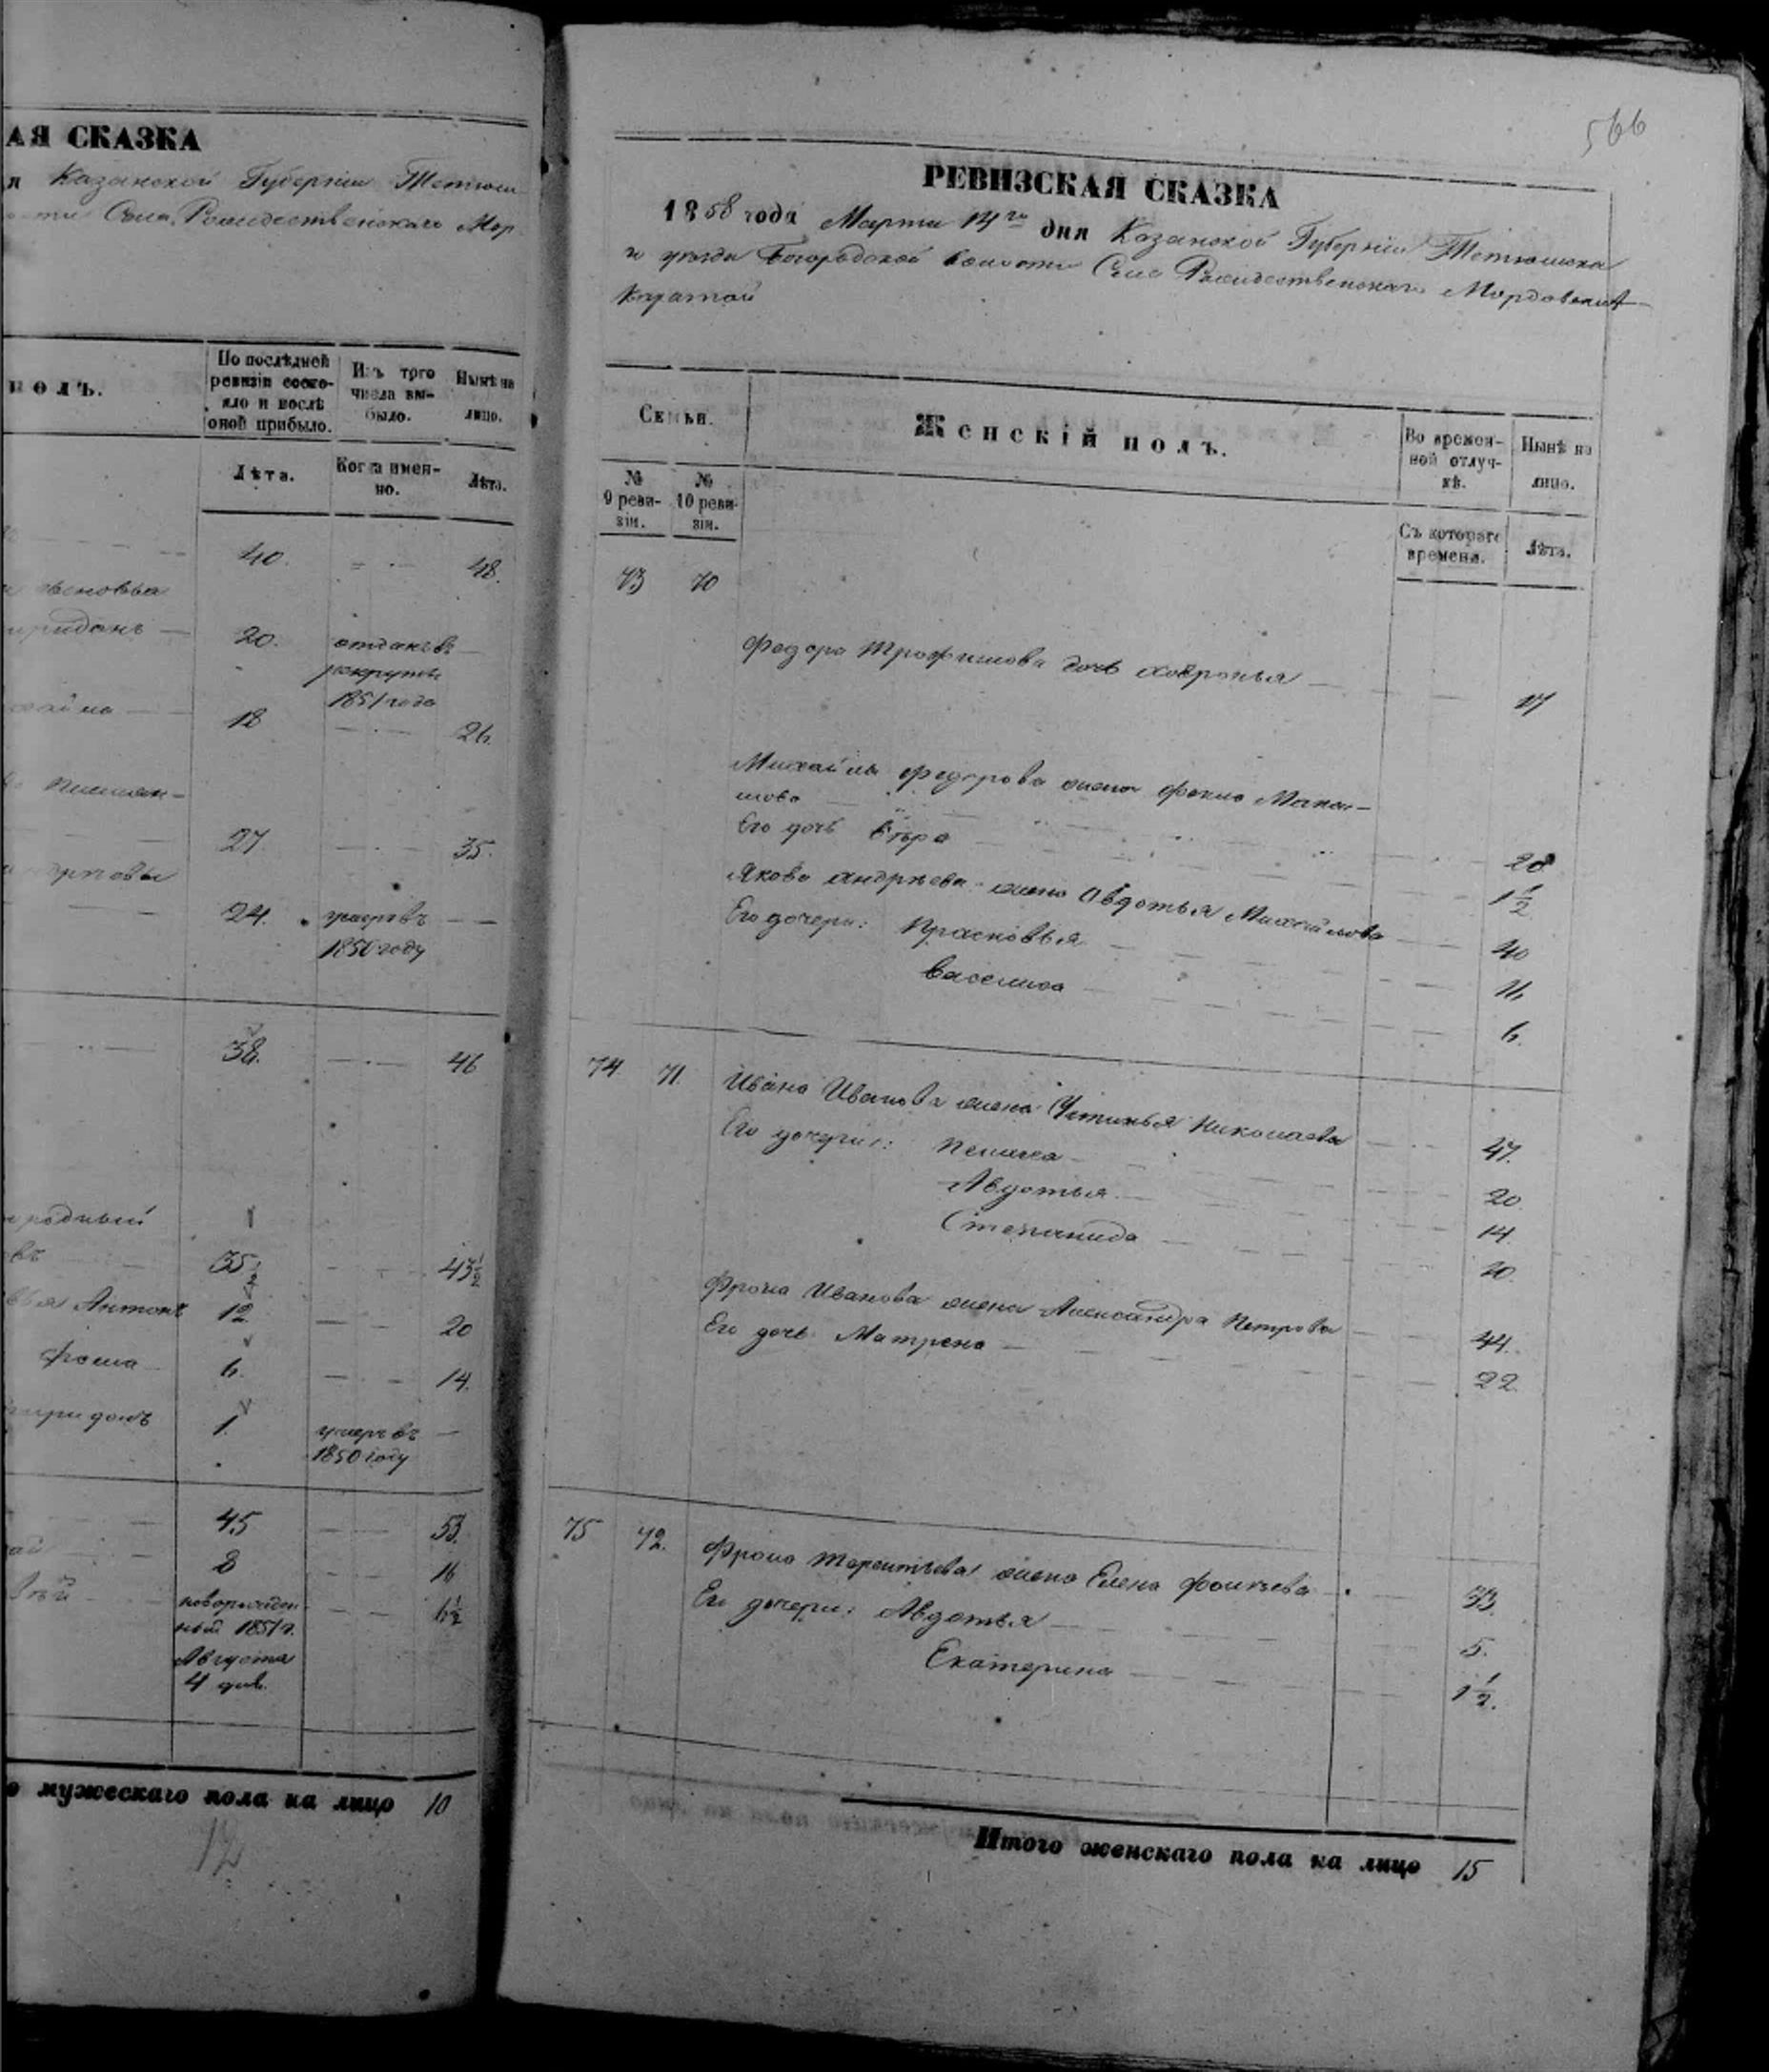 АЯ СКАЗКА
я Казанской Губернии Тетюш
Села Рождественскаго Мор
полъ.
По послѣдней ревизіи состояло и послѣ оной прибыло.
Изъ того числа выбыло.
Нынѣ на лицо.
Лѣта.
Когда именно.
Лѣта.
40. 48.
20. отданъ въ
рекруты
1851 года
18 26.
27. 35.
24. умеръ въ
1850 году
38. 46
родный
35 1/2 43 1/2
Антонъ 12 20
Фома 6. 14.
1. умеръ въ
1850 году
45 53.
8 16
новорожден
ный 1851 г. 6 1/2
Августа
4 дня.
мужескаго пола на лицо 10
12
566
РЕВИЗСКАЯ СКАЗКА
1858 года Марта 14го дня Казанской Губерніи Тетюшска
го уезда Богородской волости Села Рождественскаго Мордовских
Каратай
Семьи.
Женскій полъ.
Во временной отлучкѣ.
Нынѣ на лицо.
№ 9 ревизіи.
№ 10 ревизіи.
Съ котораго времени.
Лѣта.
73 70
Федора Трофимова дочь Ховронья 17
Михайла Федорова жена Фекла Макси-
мова 28
Его дочь Вѣра 1 1/2
Якова Андрѣева жена Авдотья Михайлова 40
Его дочери: Прасковья 11
Василиса 6.
74 71. Ивана Иванова жена Устинья Николаева 47.
Его дочери: Пелагея 20
Авдотья 14.
Степанида 10.
Фрола Иванова жена Александра Петрова 44.
Его дочь Матрена 22
75 72. Фрола Терентьева жена Елена 33.
Его дочери: Авдотья 5.
Екатерина 1 1/2.
Итого женскаго пола на лицо 15